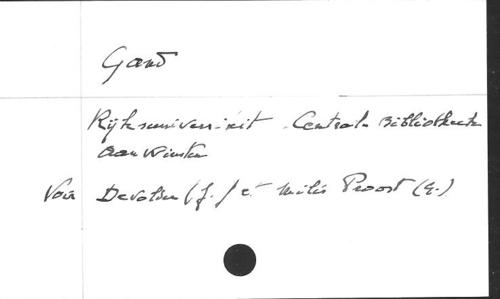 Gand
Rijksuniversiteit Centrale Bibliotheek
Aanwinsten
Voir Devolder (J.) et Milis Proost (G.)